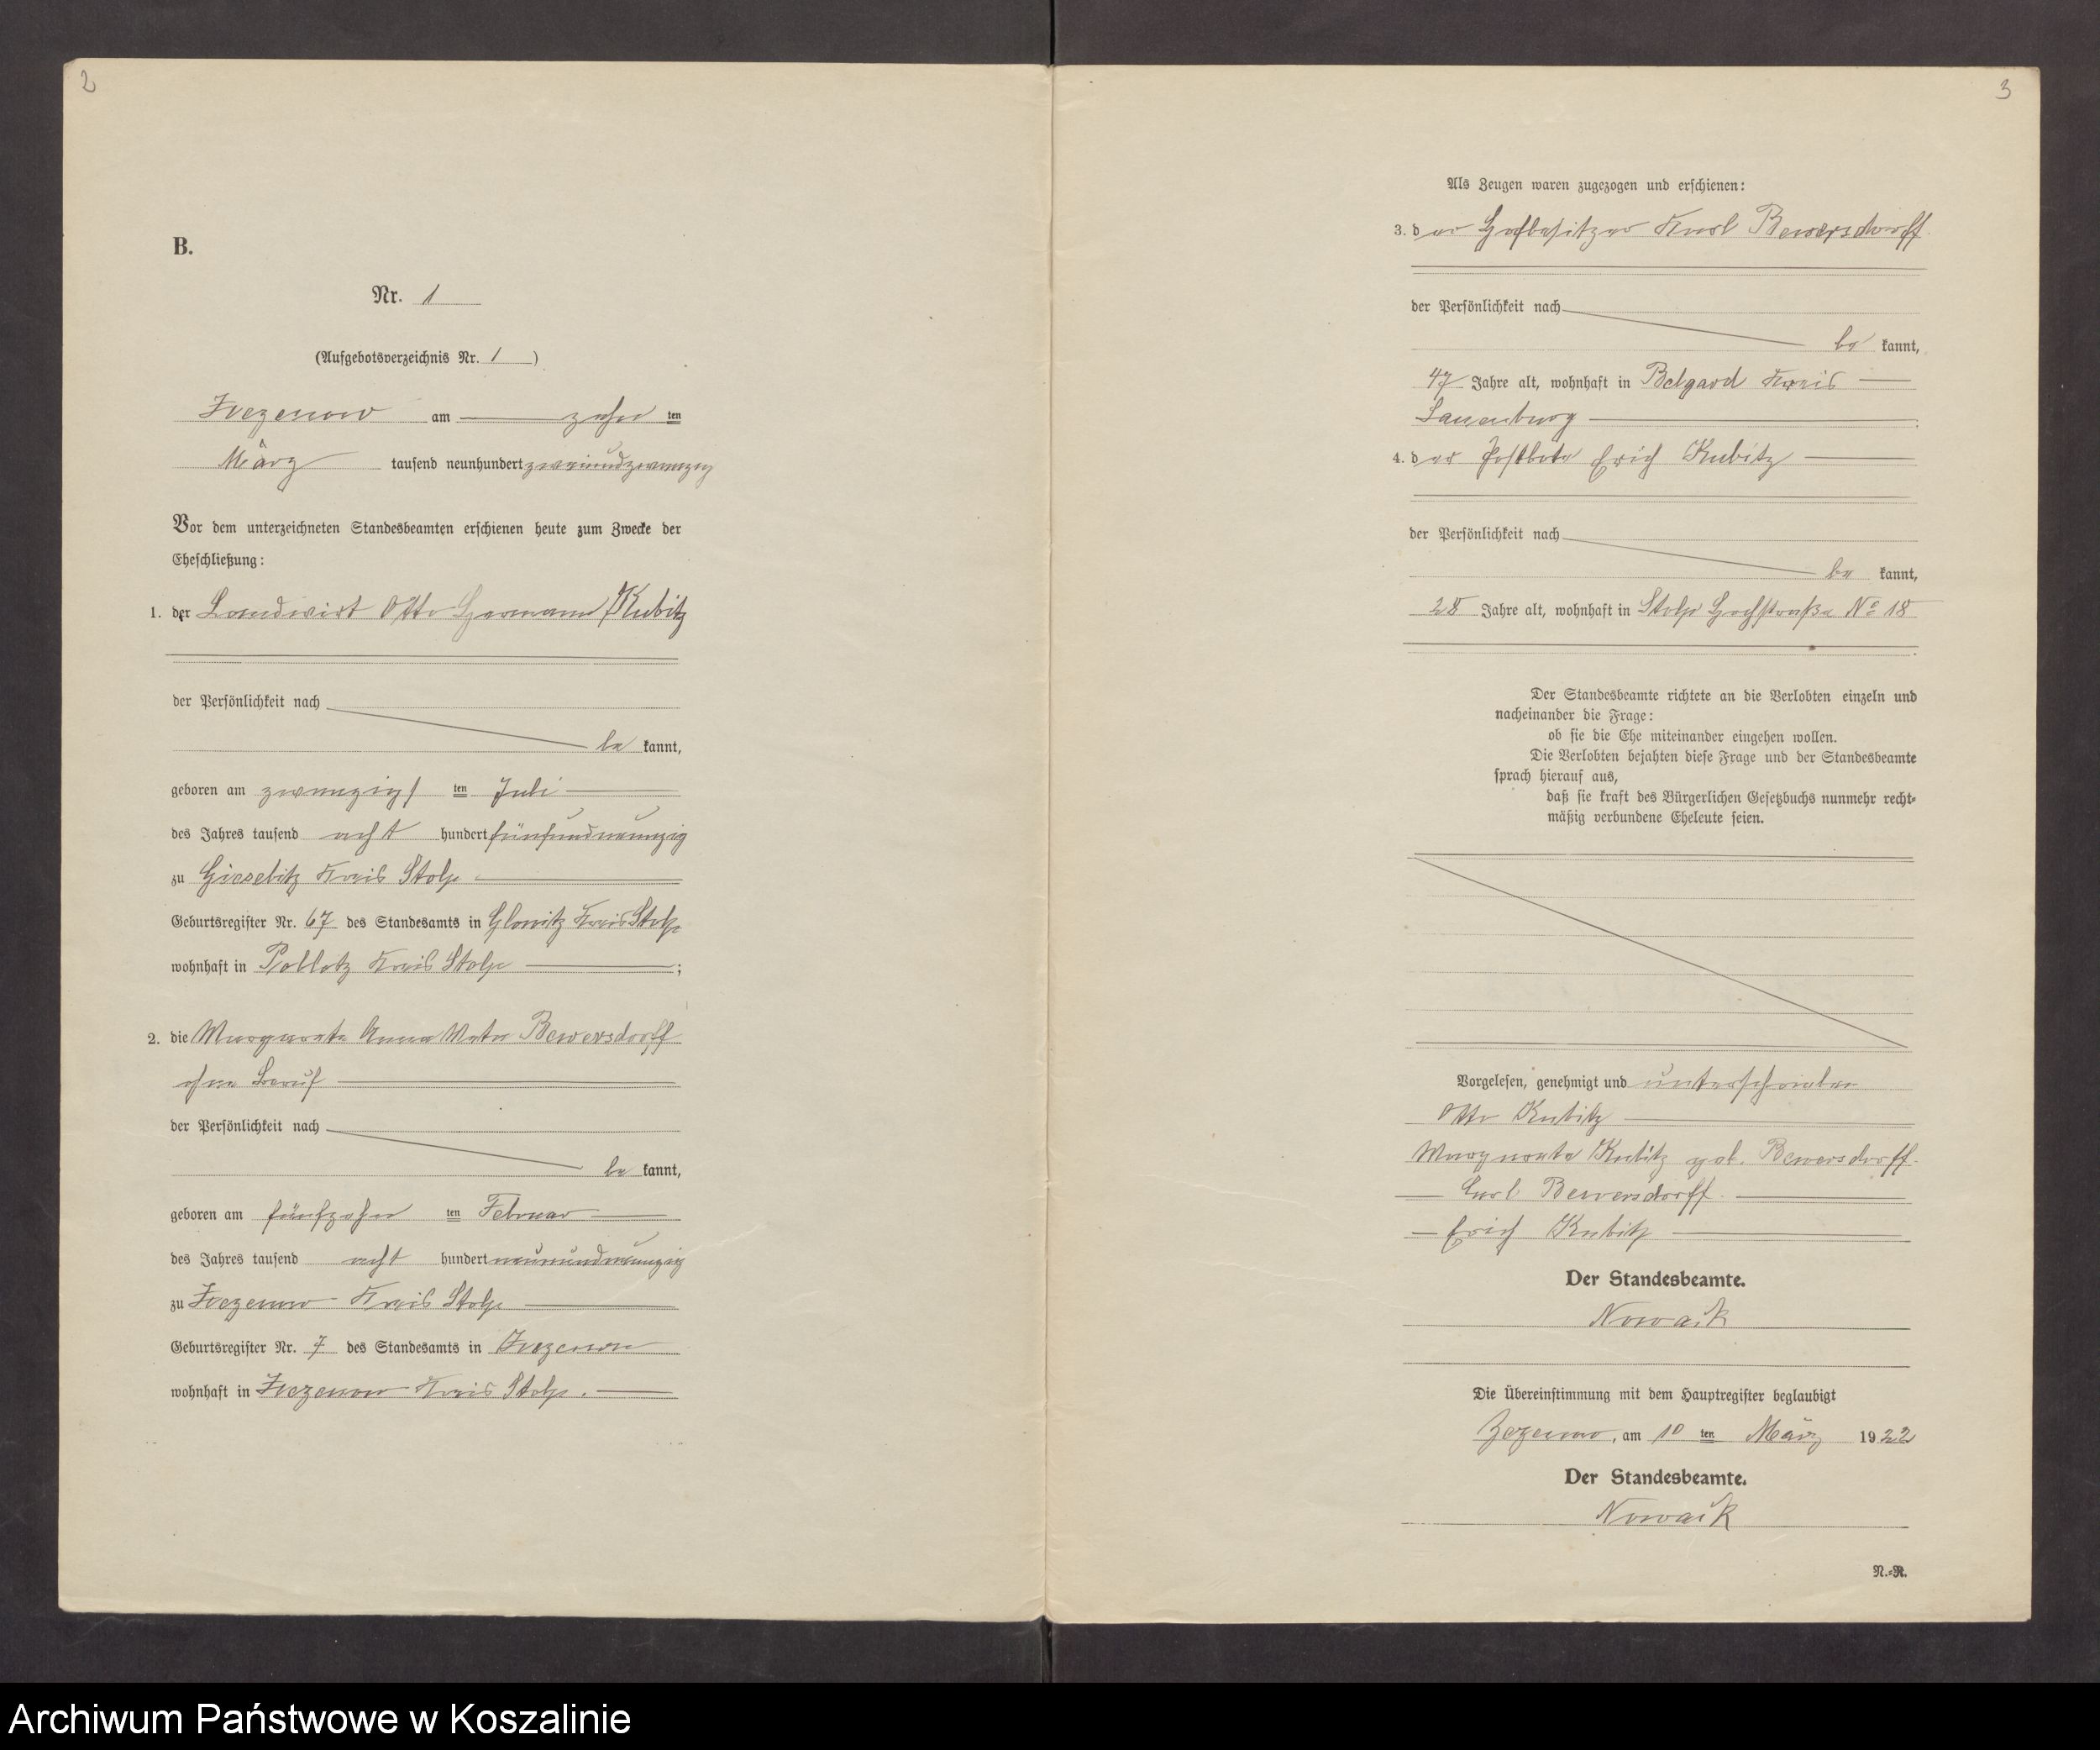 2
B.
Nr. 1
(Aufgebotsverzeichnis Nr. 1)
Zezenow am zehn ten
März tausend neunhundert zweiundzwanzig
Vor dem unterzeichneten Standesbeamten erschienen heute zum Zwecke der
Eheschließung:
1. der Landwirt Otto Hermann Kubitz
der Persönlichkeit nach
be kannt,
geboren am zwanzigs ten Juli
des Jahres tausend acht hundert fünfundneunzig
zu Giesebitz Kreis Stolp
Geburtsregister Nr. 67 des Standesamts in Glowitz Kreis Stolp
wohnhaft in Pollotz Kreis Stolp ;
2. die Margareta Anna Meta Bewersdorff
ohne Beruf
der Persönlichkeit nach
be kannt,
geboren am fünfzehn ten Februar
des Jahres tausend acht hundert neunundneunzig
zu Zezenow Kreis Stolp
Geburtsregister Nr. 7 des Standesamts in Zezenow
wohnhaft in Zezenow Kreis Stolp.
3
Als Zeugen waren zugezogen und erschienen:
3. der Hofbesitzer Karl Bewersdorff
der Persönlichkeit nach
be kannt,
47 Jahre alt, wohnhaft in Belgard Kreis
Lauenburg
4. der Postbote Erich Kubitz
der Persönlichkeit nach
be kannt,
28 Jahre alt, wohnhaft in Stolp Hochstraße No 18
Der Standesbeamte richtete an die Verlobten einzeln und
nacheinander die Frage:
ob sie die Ehe miteinander eingehen wollen.
Die Verlobten bejahten diese Frage und der Standesbeamte
sprach hierauf aus,
daß sie kraft des Bürgerlichen Gesetzbuchs nunmehr recht-
mäßig verbundene Eheleute seien.
Vorgelesen, genehmigt und unterschrieben
Otto Kubitz
Margareta Kubitz geb. Bewersdorff.
Carl Bewersdorff.
Erich Kubitz
Der Standesbeamte.
Nowack
Die Übereinstimmung mit dem Hauptregister beglaubigt
Zezenow, am 10 ten März 1922
Der Standesbeamte.
Nowack
N.-R.
Archiwum Państwowe w Koszalinie